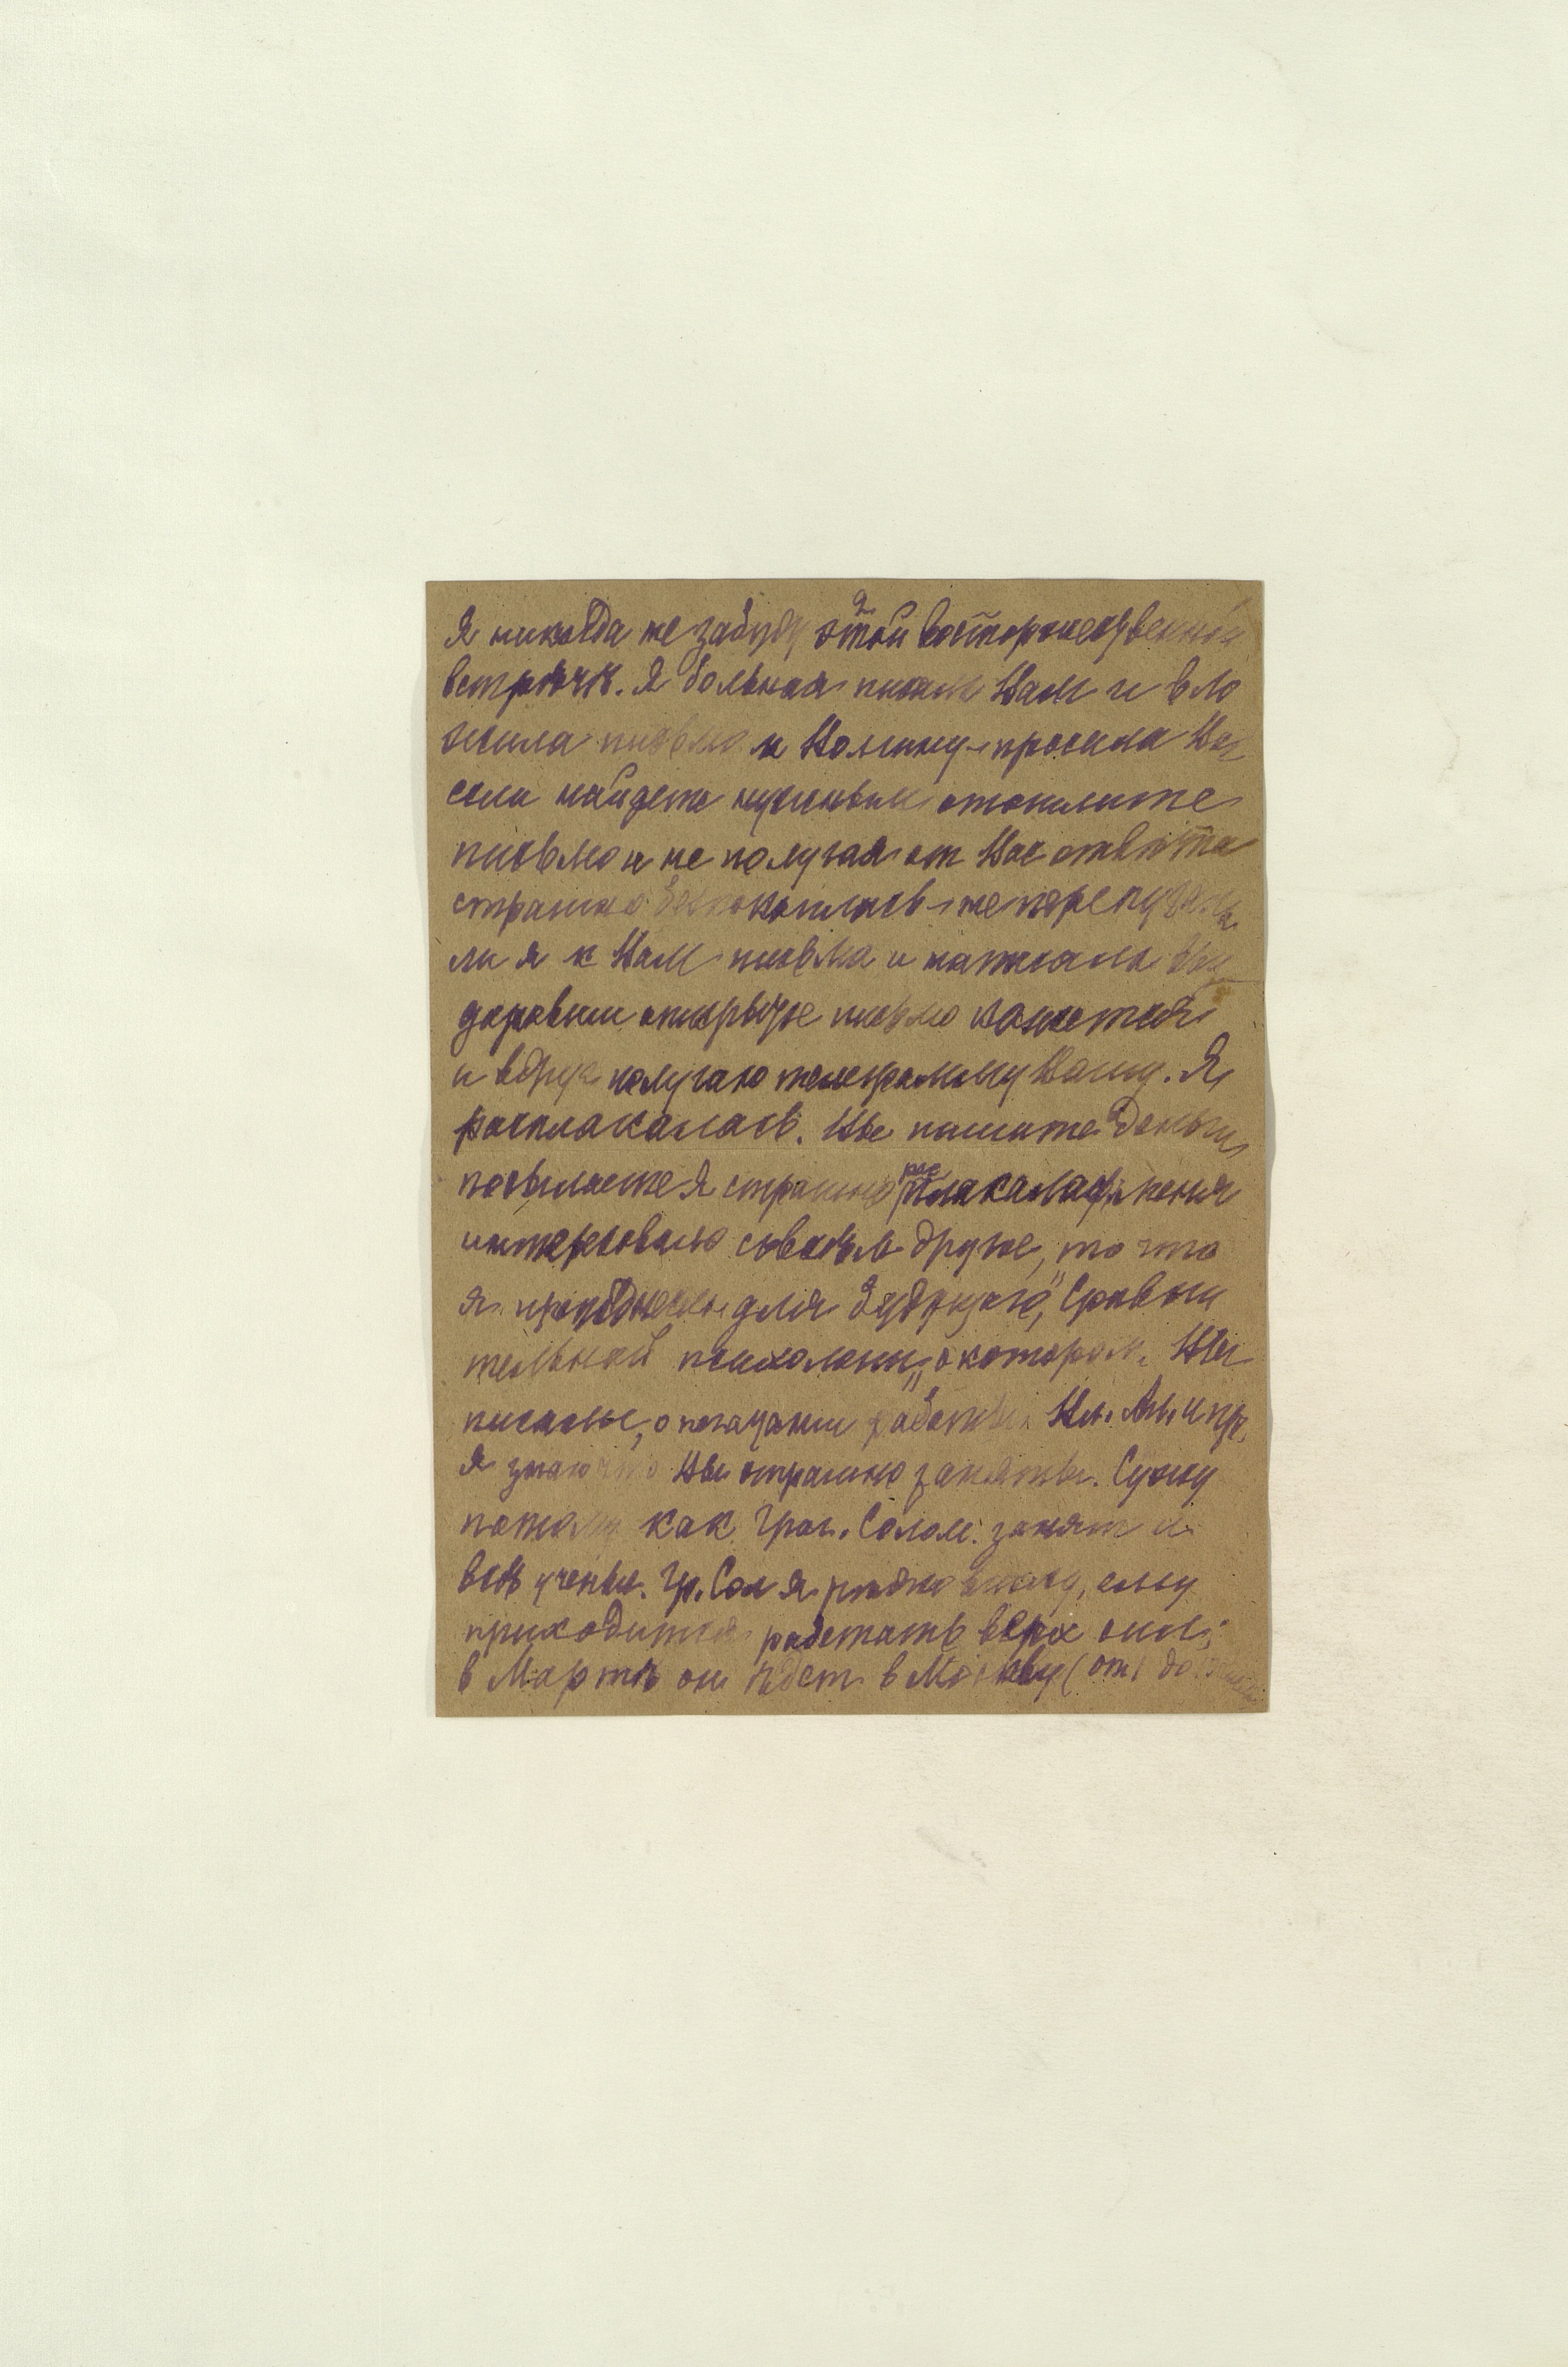 Я никогда не забуду этой восторженной
встрѣчи. Я больная писала Вам и вло
жила письмо к Вашему просила Вас
если найдете нужным отошлите
письмо и не получая от Вас отвѣта
страшно безпокоилась не перепутала
ли я к Вам письма и написала Вам
открытое письмо кажется
и вдруг получаю телеграмму Вашу. Я
расплакалась. Вы пишите деньги
посылаете Я страшно расплакалась меня
интересовало совсѣм другое, то что
я для будущаго, „Сравни
тельной психологии" о котором Вы
писали, о печатании работы Вл. Ал. и пр.
Я знаю что Вы страшно заняты. Сужу
потому как Григ. Солом. занят и
всѣ ученые. Гр. Сол я рѣдко вижу, ему
приходится работать верх сил;
в Мартѣ он ѣдет в Москву (от